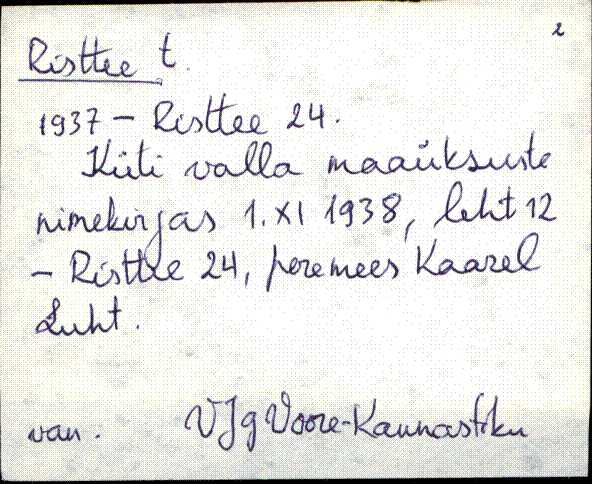 2
Risttee t.
1937 - Risttee 24.
Küti valla maaüksuste
nimekirjas 1. XI 1938, leht 12
- Risttee 24, peremees Kaarel
Luht.
van. VJg Voore-Kaunastiku